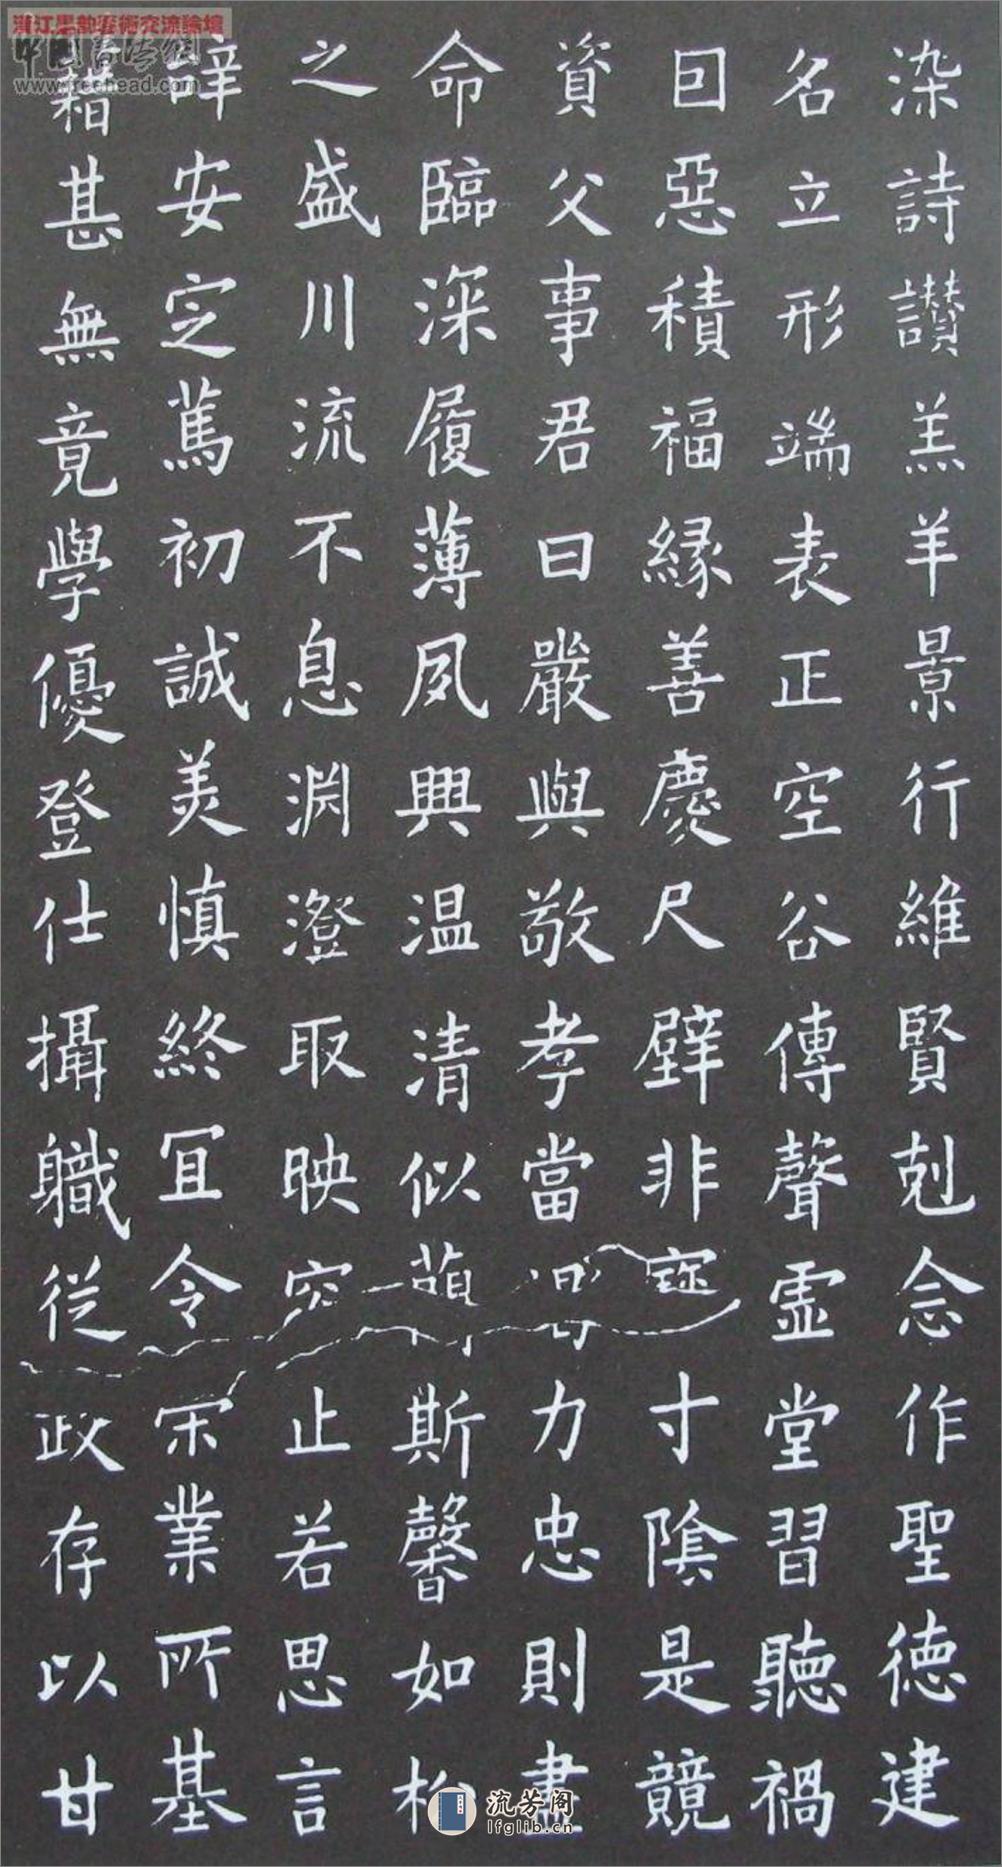 染詩讃羔羊景行維賢剋念作聖德建
名立形端表正空谷傳聲虛堂習聽禍
因惡積福緣善慶尺璧非寶寸陰是競
資父事君曰嚴與敬孝當力忠則盡
命臨深履薄夙興温清似蘭斯馨如松
之盛川流不息淵澄取映容止若思言
辞安定篤初誠美慎終宜令榮業所基
籍甚無竟學優登仕攝職從政存以甘
浙江墨韵藝術交流論壇
中國書法網
www.freehead.com
流芳阁
lfglib.cn